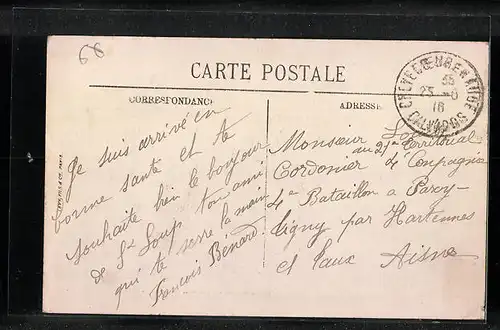 66
CARTE POSTALE
CORRESPONDANCE
ADRESSE
CREVECŒUR EN AUGE
25 -8
16
CALVADOS
Je suis arrivé en
bonne santé et te
souhaite bien le bonjour
de St Loup ton ami
qui te serre la main
François Bénard.
Monsieur
au 21e Territorial
Cordonier 4e Compagnie
4e Bataillon a Parcy-
Tigny par Hartennes
et Taux Aisne